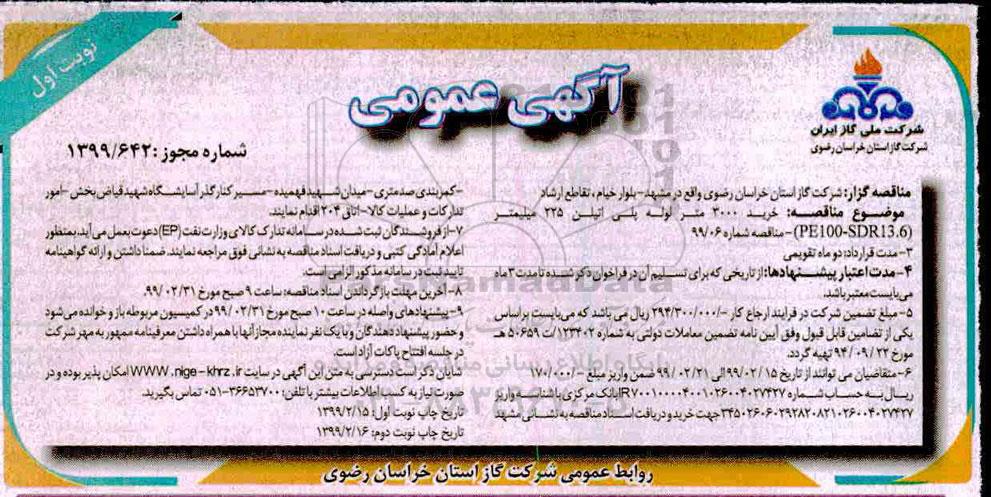 نوبت اول
آگهی عمومی
شرکت ملی گاز ایران
شرکت گاز استان خراسان رضوی
شماره مجوز :۱۳۹۹/۶۴۲
مناقصه گزار: شرکت گاز استان خراسان رضوی واقع در مشهد- بلوار خیام ، تقاطع ارشاد
موضوع مناقصه: خرید ۳۰۰۰ متر لوله پلی اتیلن ۲۲۵ میلیمتر
(PE100-SDR13.6) – مناقصه شماره ۹۹/۰۶
۳-مدت قرارداد: دو ماه تقویمی
۴-مدت اعتبار پیشنهادها: از تاریخی که برای تسلیم آن در فراخوان ذکر شده تا مدت ۳ ماه
می‌بایست معتبر باشد.
۵-مبلغ تضمین شرکت در فرایند ارجاع کار -/۲۹۴/۳۰۰/۰۰۰ ریال می باشد که می‌بایست براساس
یکی از تضامین قابل قبول وفق آیین نامه تضمین معاملات دولتی به شماره ۱۲۳۴۰۲/ت ۵۰۶۵۹ هـ
مورخ ۹۴/۰۹/۲۲ تهیه گردد.
۶-متقاضیان می توانند از تاریخ ۹۹/۰۲/۱۵ الی ۹۹/۰۲/۲۱ ضمن واریز مبلغ -/۱۷۰/۰۰۰
ریال به حساب شماره IR۷۰۰۱۰۰۰۰۴۰۰۱۰۲۶۰۰۴۰۲۷۴۲۷ بانک مرکزی با شناسه واریز
۳۴۵۰۲۶۰۶۰۲۹۲۸۲۰۸۲۱۰۲۶۰۰۴۰۲۷۴۲۷ جهت خرید و دریافت اسناد مناقصه به نشانی مشهد
-کمربندی صدمتری -میدان شهید فهمیده -مسیر کنارگذر آسایشگاه شهید فیاض بخش -امور
تدارکات و عملیات کالا-اتاق ۲۰۴ اقدام نمایند.
۷-از فروشندگان ثبت شده در سامانه تدارک کالای وزارت نفت (EP) دعوت بعمل می آید، بمنظور
اعلام آمادگی کتبی و دریافت اسناد مناقصه به نشانی فوق مراجعه نمایند. ضمنا داشتن و ارائه گواهینامه
تایید ثبت در سامانه مذکور الزامی است.
۸- آخرین مهلت بازگرداندن اسناد مناقصه: ساعت ۹ صبح مورخ ۹۹/۰۲/۳۱.
۹-پیشنهادهای واصله در ساعت ۱۰ صبح مورخ ۹۹/۰۲/۳۱ در کمیسیون مربوطه باز و خوانده می شود
و حضور پیشنهاد دهندگان و یا یک نفر نماینده مجاز آنها با همراه داشتن معرفینامه ممهور به مهر شرکت
در جلسه افتتاح پاکات آزاد است.
شایان ذکر است دسترسی به متن این آگهی در سایت WWW.nige-khrz.ir امکان پذیر بوده و در
صورت نیاز به کسب اطلاعات بیشتر با تلفن: ۳۶۶۵۳۷۰۰-۰۵۱ تماس بگیرید.
تاریخ چاپ نوبت اول: ۱۳۹۹/۲/۱۵
تاریخ چاپ نوبت دوم: ۱۳۹۹/۲/۱۶
روابط عمومی شرکت گاز استان خراسان رضوی